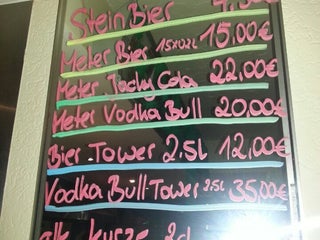 Stein Bier
Meter Bier 15x02L 15,00€
Meter Jacky Cola 22,00€
Meter Vodka Bull 20,00€
Bier Tower 2.5L 12,00€
Vodka Bull-Tower 2.5L 35,00€
alk. kurze 2cl